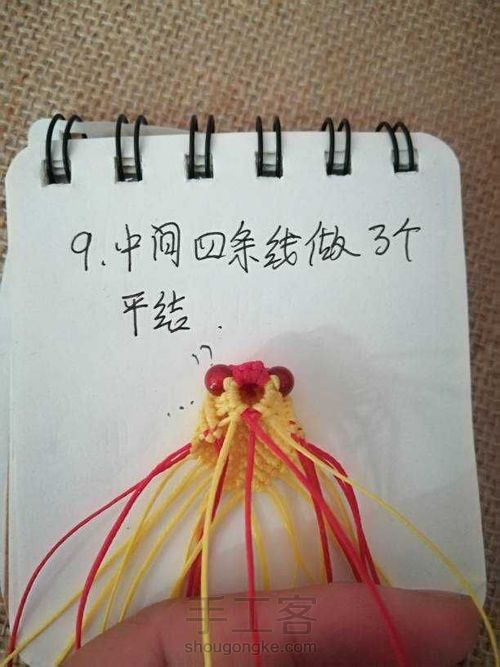 9.中间四条线做3个
平结.
手工客
shougongke.com